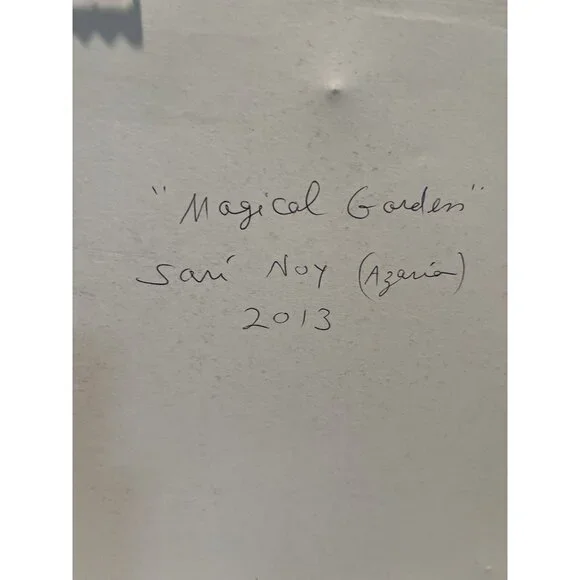 "Magical Garden"
Sari Noy (Azaria)
2013